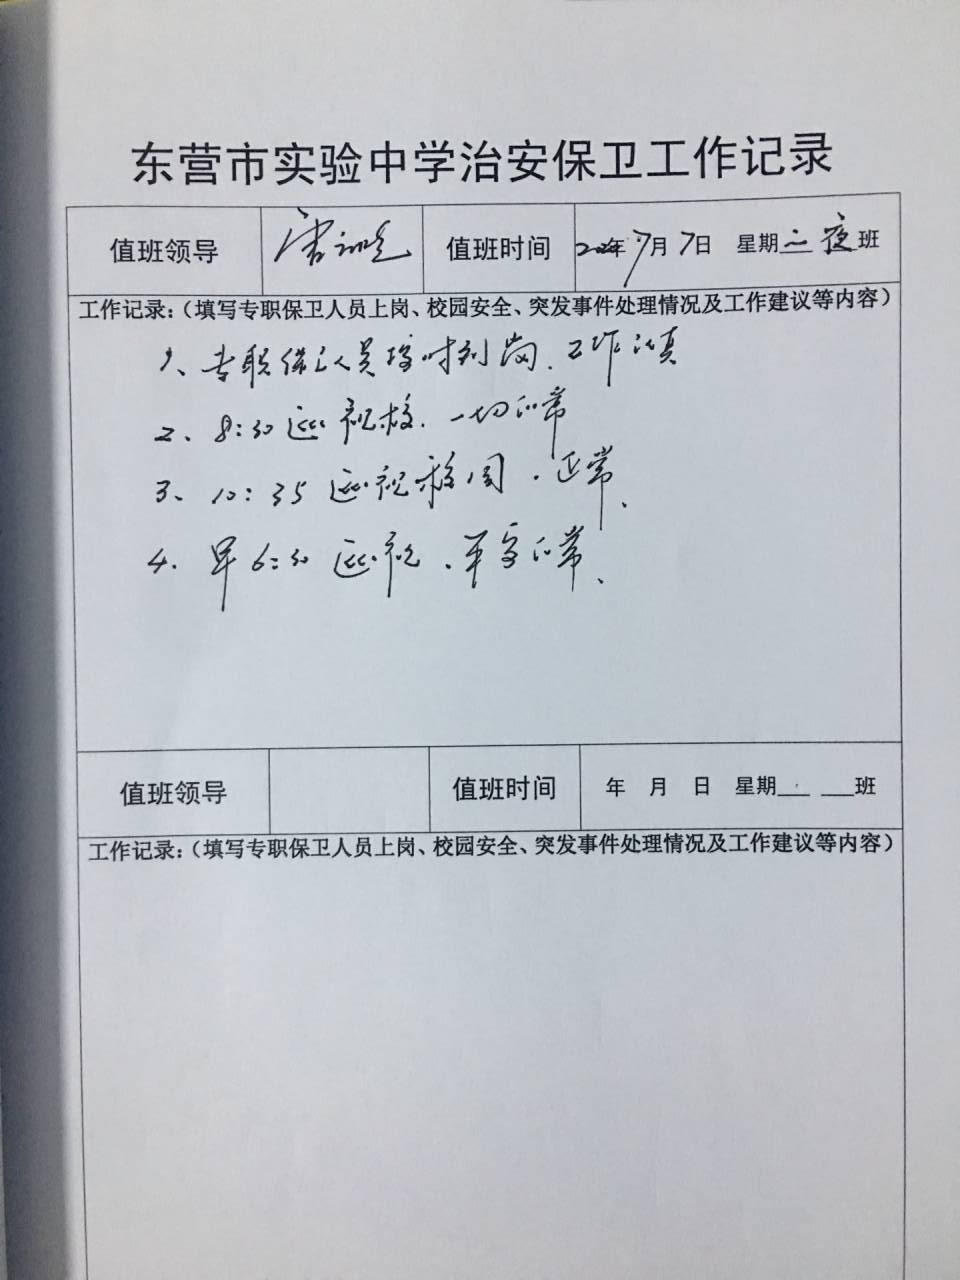 东营市实验中学治安保卫工作记录
值班领导 值班时间 年7月7日 星期二 夜班
工作记录:(填写专职保卫人员上岗、校园安全、突发事件处理情况及工作建议等内容)
1、专职保卫人员按时到岗、工作认真
2、8:30巡视校、一切正常
3、10:35巡视校园、正常、
4、早6:30巡视、平安正常、
值班领导 值班时间 年 月 日 星期 班
工作记录:(填写专职保卫人员上岗、校园安全、突发事件处理情况及工作建议等内容)